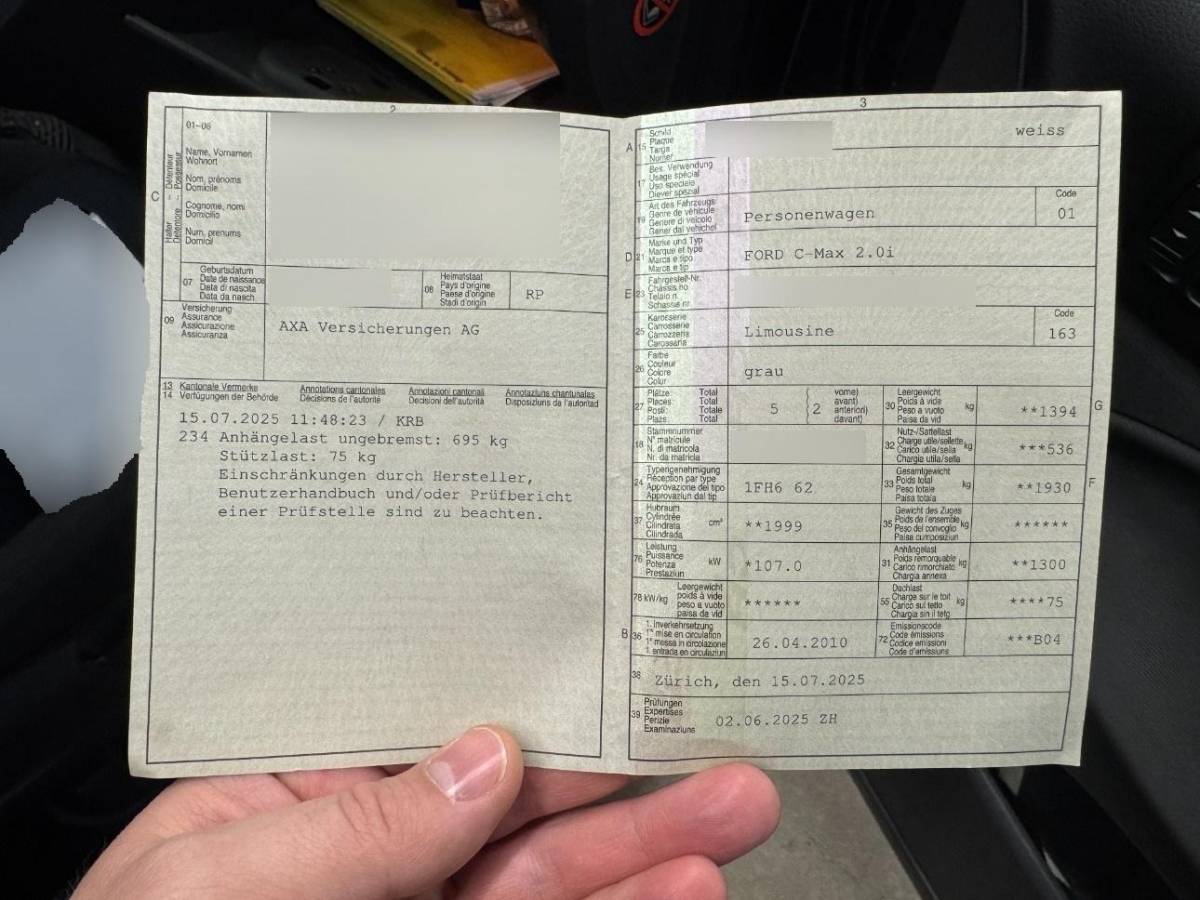 2
01-06
Halter – Détenteur
Detentore – Possessur
C
Name, Vornamen
Wohnort
Nom, prénoms
Domicile
Cognome, nomi
Domicilio
Num, prenums
Domicil
07
Geburtsdatum
Date de naissance
Data di nascita
Data da nasch.
08
Heimatstaat
Pays d'origine
Paese d'origine
Stadi d'origin
RP
09
Versicherung
Assurance
Assicurazione
Assicuranza
AXA Versicherungen AG
13 Kantonale Vermerke Annotations cantonales Annotazioni cantonali Annotaziuns chantunalas
14 Verfügungen der Behörde Décisions de l'autorité Decisioni dell'autorità Disposiziuns da l'autoritad
15.07.2025 11:48:23 / KRB
234 Anhängelast ungebremst: 695 kg
Stützlast: 75 kg
Einschränkungen durch Hersteller,
Benutzerhandbuch und/oder Prüfbericht
einer Prüfstelle sind zu beachten.
3
A 15
Schild
Plaque
Targa
Numer
weiss
17
Bes. Verwendung
Usage spécial
Uso speciale
Diever spezial
19
Art des Fahrzeugs
Genre de véhicule
Genere di veicolo
Gener dal vehichel
Personenwagen
Code
01
D 21
Marke und Typ
Marque et type
Marca e tipo
Marca e tip
FORD C-Max 2.0i
E 23
Fahrgestell-Nr.
Châssis no
Telaio n.
Schassis nr.
25
Karosserie
Carrosserie
Carrozzeria
Carossaria
Limousine
Code
163
26
Farbe
Couleur
Colore
Colur
grau
27
Plätze: Total
Places: Total
Posti: Totale
Plazs: Total
5
2
vorne)
avant)
anteriori)
davant)
30
Leergewicht
Poids à vide
Peso a vuoto
Paisa da vid
kg
**1394
G
18
Stammnummer
N° matricule
N. di matricola
Nr. da matricla
32
Nutz-/Sattellast
Charge utile/sellette
Carico utile/sella
Chargia utila/sella
kg
***536
24
Typengenehmigung
Réception par type
Approvazione del tipo
Approvaziun dal tip
1FH6 62
33
Gesamtgewicht
Poids total
Peso totale
Paisa totala
kg
**1930
F
37
Hubraum
Cylindrée
Cilindrata
Cilindrada
cm³
**1999
35
Gewicht des Zuges
Poids de l'ensemble
Peso del convoglio
Paisa cumposiziun
kg
******
76
Leistung
Puissance
Potenza
Prestaziun
kW
*107.0
31
Anhängelast
Poids remorquable
Carico rimorchiato
Chargia annexa
kg
**1300
78 kW/kg
Leergewicht
poids à vide
peso a vuoto
paisa da vid
******
55
Dachlast
Charge sur le toit
Carico sul tetto
Chargia sin il tetg
kg
****75
B 36
1. Inverkehrsetzung
1re mise en circulation
1a messa in circolazione
1. entrada en circulaziun
26.04.2010
72
Emissionscode
Code émissions
Codice emissioni
Code d'emissiuns
***B04
38
Zürich, den 15.07.2025
39
Prüfungen
Expertises
Perizie
Examinaziuns
02.06.2025 ZH